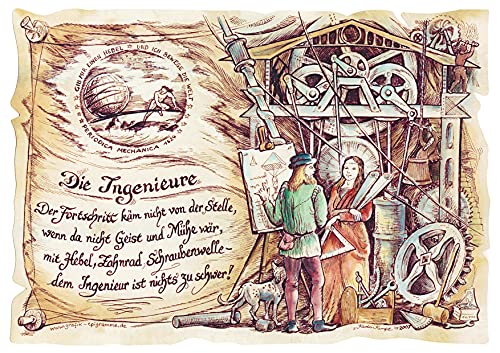 GIB MIR EINEN HEBEL UND ICH BEWEGE DIE WELT
PERIODICA MECHANICA
Die Ingenieure
Der Fortschritt käm nicht von der Stelle,
wenn da nicht Geist und Mühe wär,
mit Hebel, Zahnrad, Schraubenwelle-
dem Ingenieur ist nichts zu schwer!
www.grafik-epigramme.de